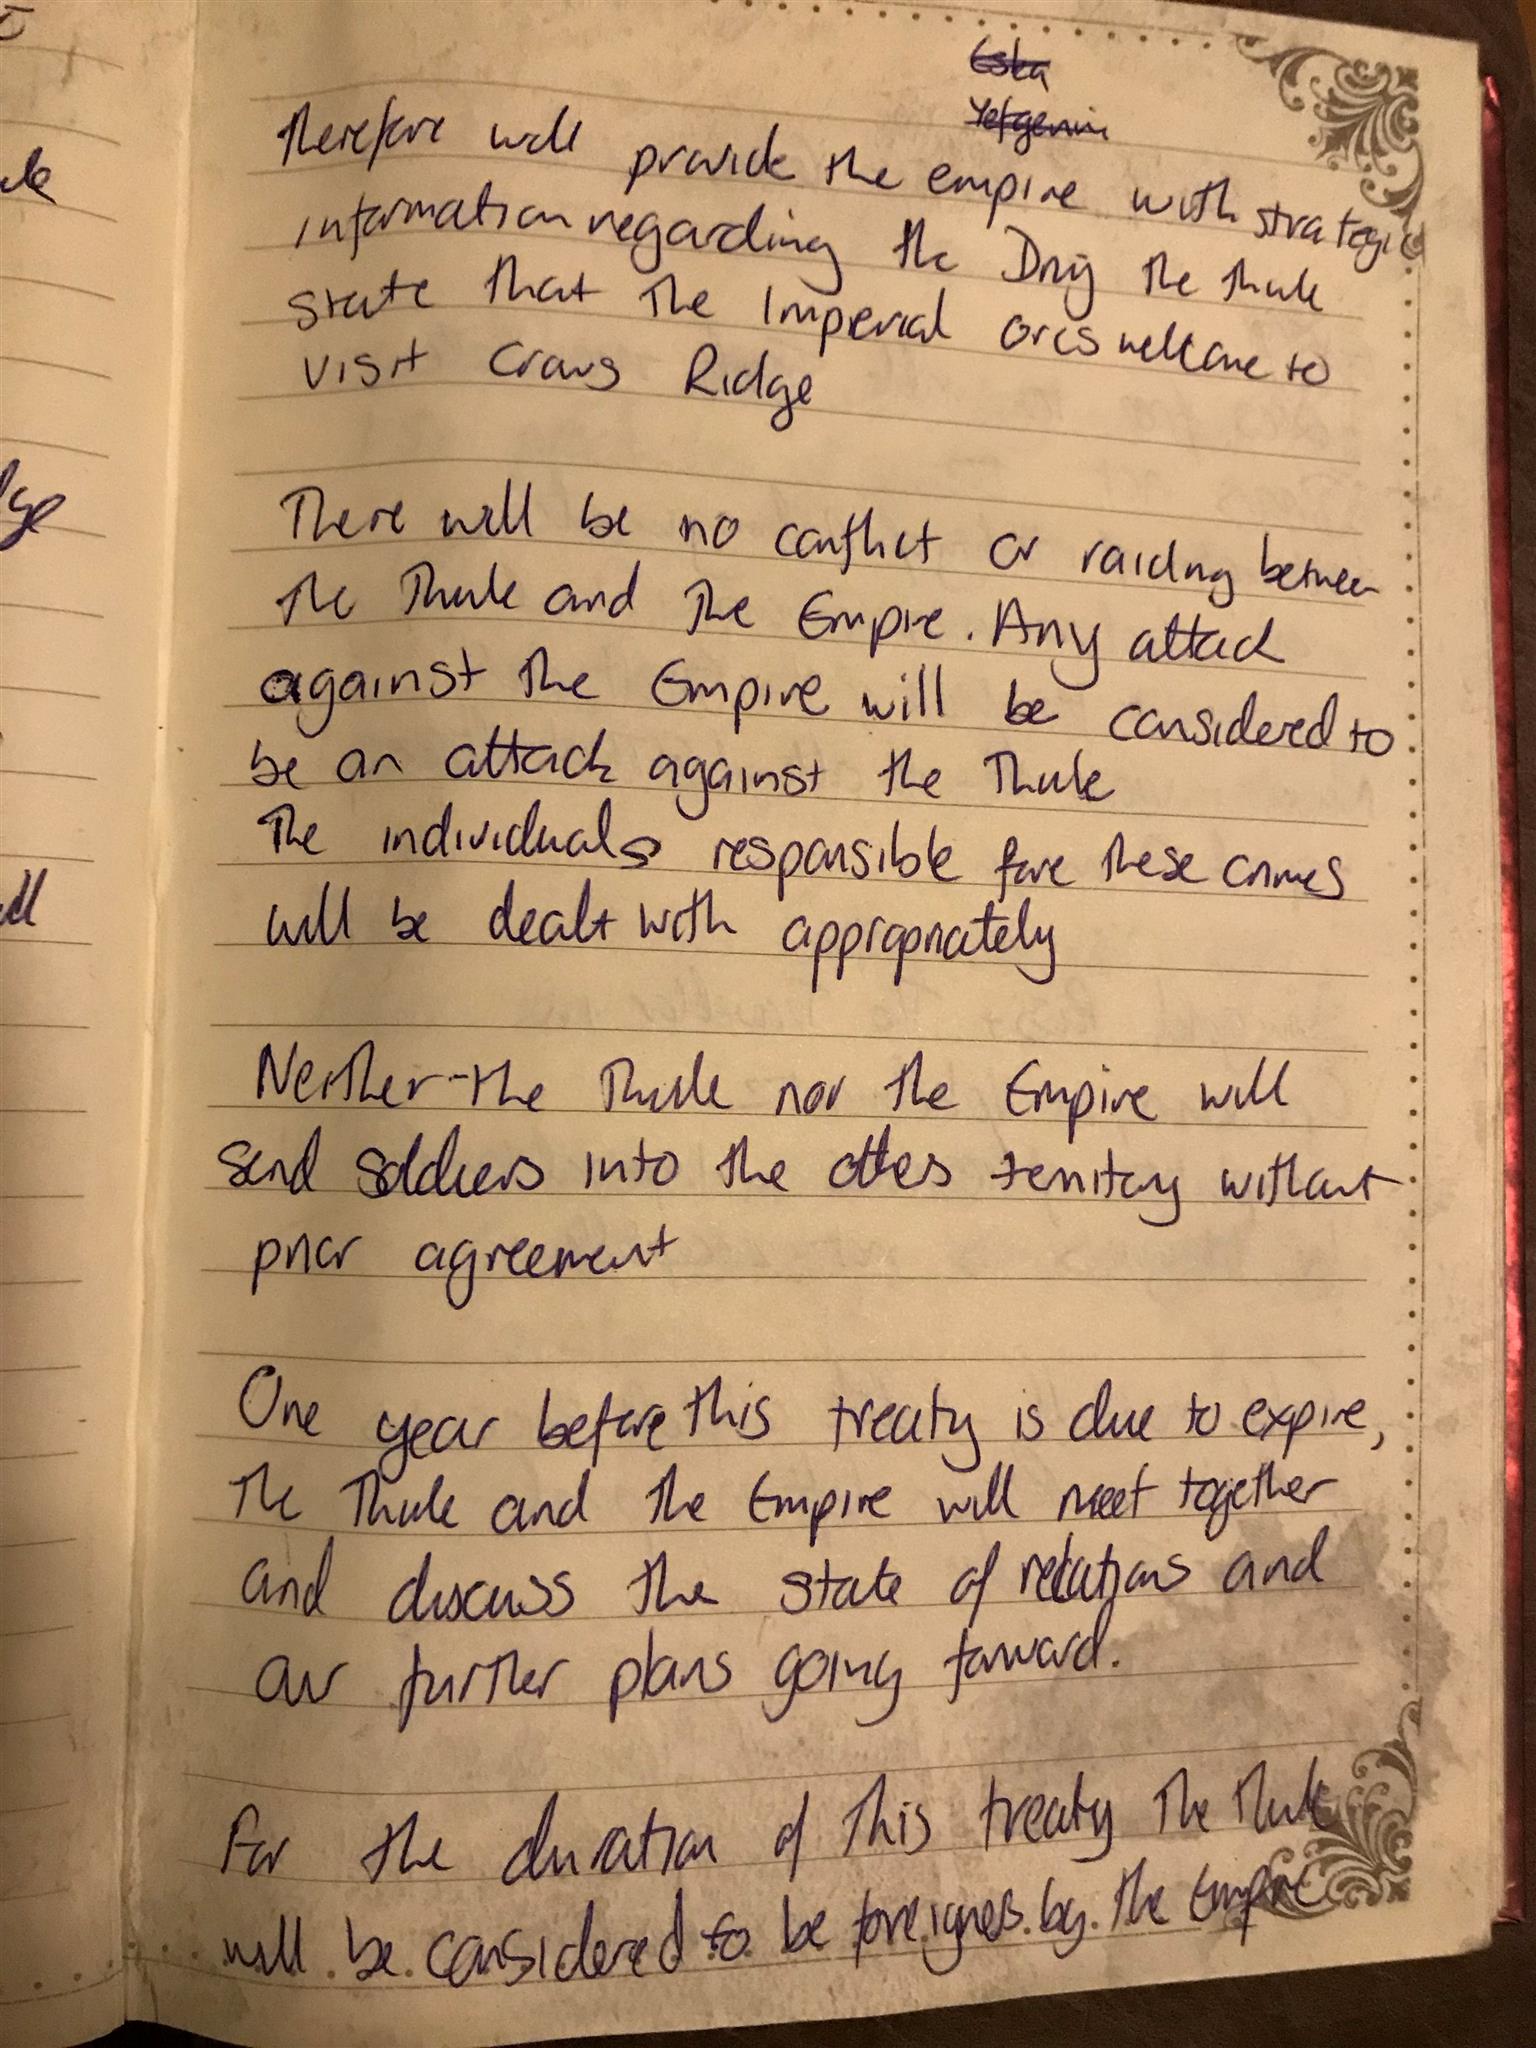 Eska
Yefgenni
therefore will provide the empire with strategic
information regarding the Druj the thule
state that the Imperial orcs wellcome to
visit Crows Ridge
There will be no conflict or raiding between
the Thule and the Empire. Any attack
against the Empire will be considered to
be an attack against the Thule
The individuals responsible fore these crimes
will be dealt with appropriately
Neither the Thule nor the Empire will
send soldiers into the others territory without
prior agreement
One year before this treaty is due to expire,
the Thule and the Empire will meet together
and discuss the state of relations and
our further plans going forward.
For the duration of this treaty the Thule
will be considered to be foreigners by the Empire